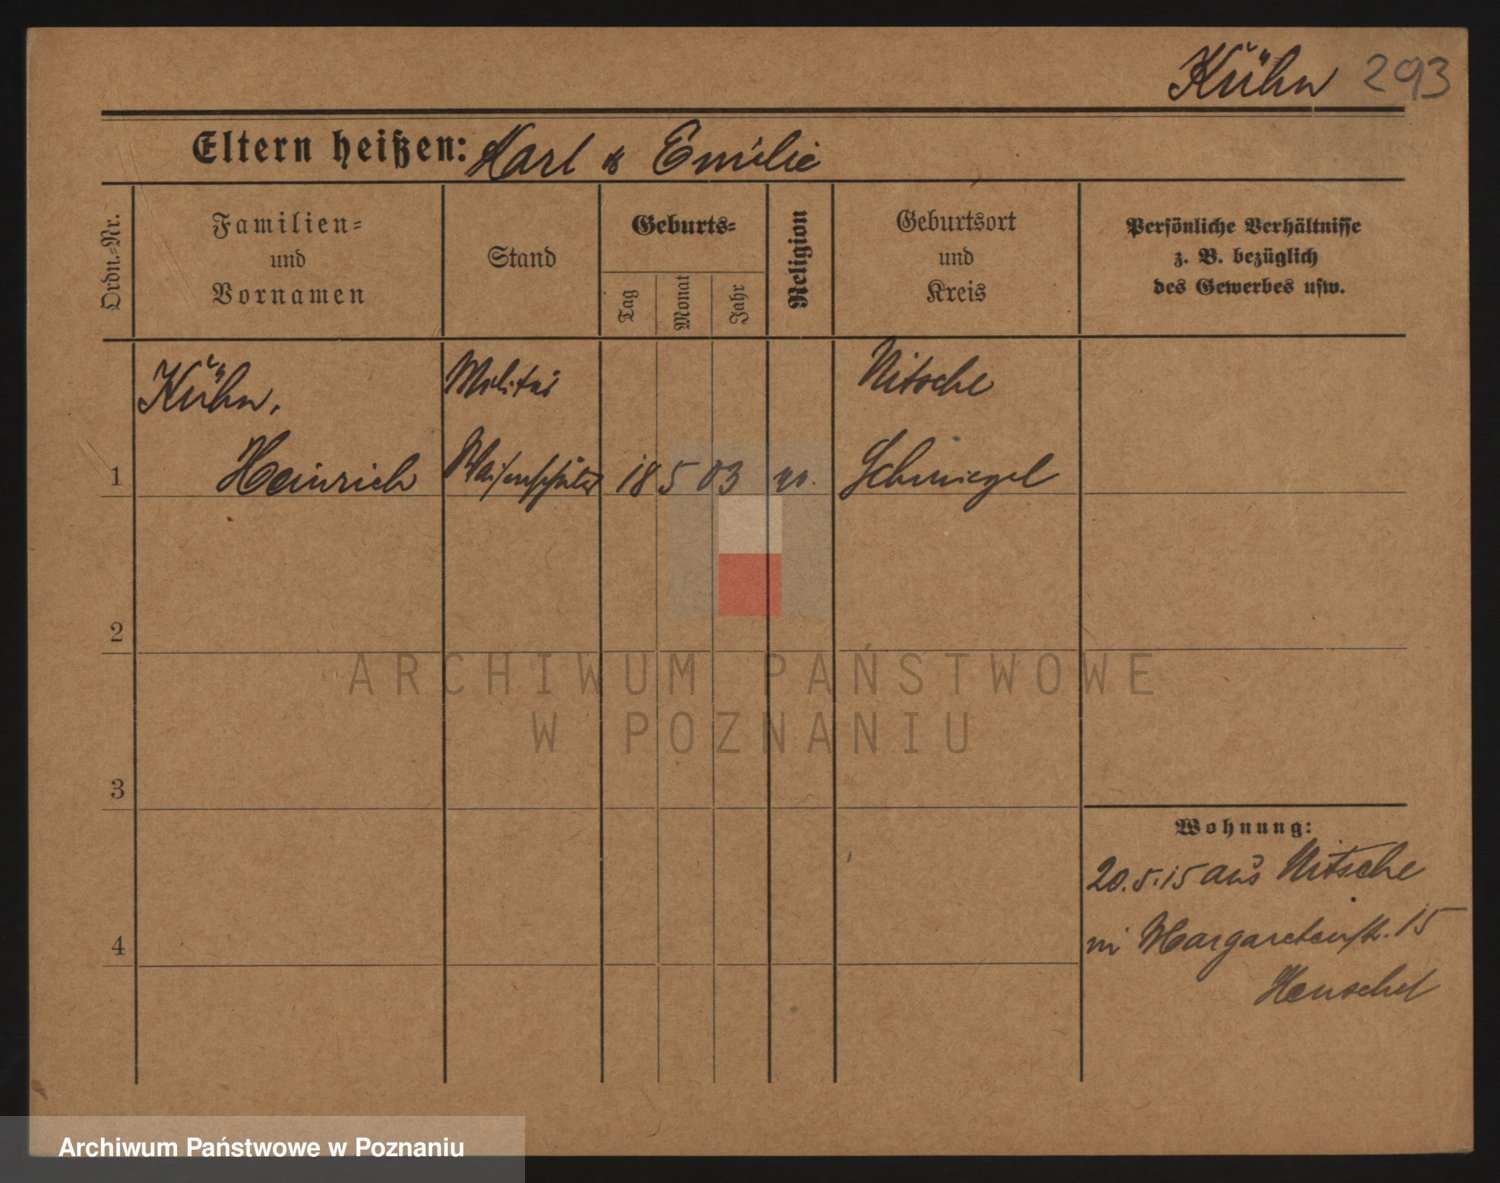 Kühn 293
Eltern heißen: Karl & Emilie
Ordn.-Nr.
Familien-
und
Vornamen
Stand
Geburts-
Tag
Monat
Jahr
Religion
Geburtsort
und
Kreis
Persönliche Verhältnisse
z. B. bezüglich
des Gewerbes usw.
Kühn, Militär Nitsche
1 Heinrich 18 5 03 Schmiegel
2
3
4
Wohnung:
20.5.15 aus Nitsche
Margaretenstr. 15
Henschel
ARCHIWUM PAŃSTWOWE
W POZNANIU
Archiwum Państwowe w Poznaniu